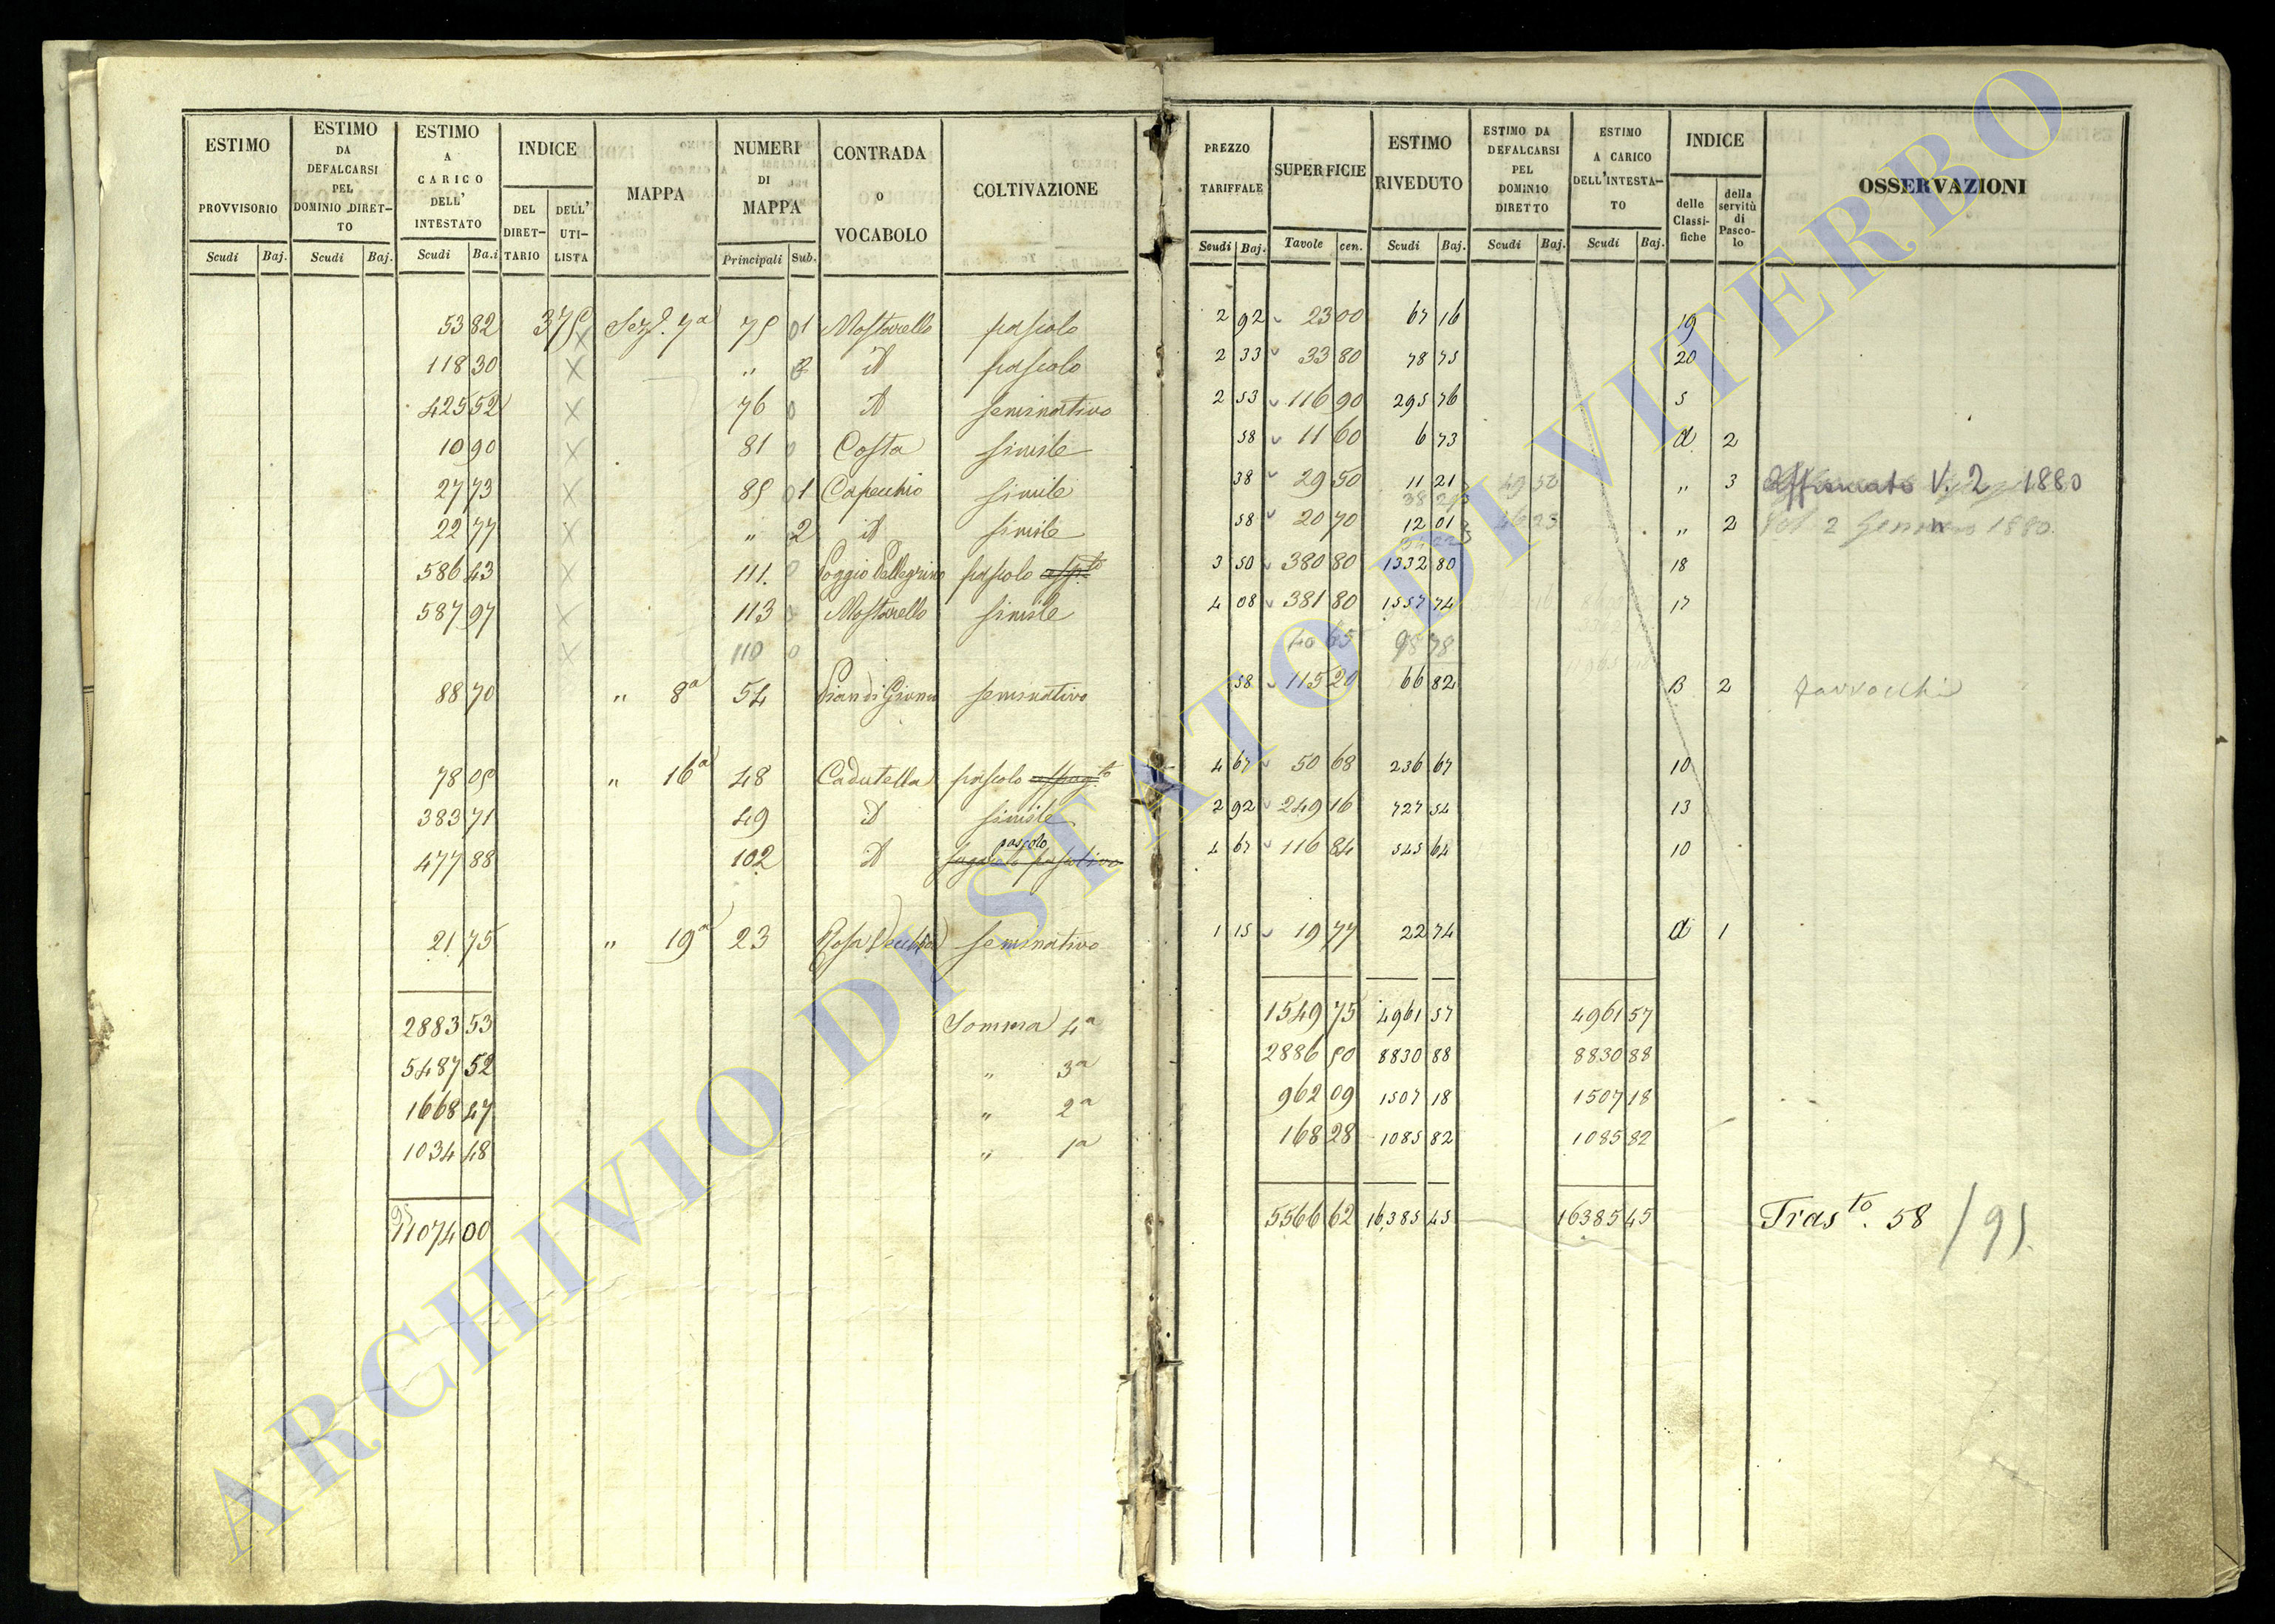 ESTIMO PROVVISORIO Scudi Baj.
ESTIMO DA DEFALCARSI PEL DOMINIO DIRET-TO Scudi Baj.
ESTIMO A CARICO DELL' INTESTATO Scudi Ba.i
INDICE DEL DIRET-TARIO DELL' UTI-LISTA
MAPPA
NUMERI DI MAPPA Principali Sub.
CONTRADA o VOCABOLO
COLTIVAZIONE
PREZZO TARIFFALE Scudi Baj.
SUPERFICIE Tavole cen.
ESTIMO RIVEDUTO Scudi Baj.
ESTIMO DA DEFALCARSI PEL DOMINIO DIRETTO Scudi Baj.
ESTIMO A CARICO DELL'INTESTA-TO Scudi Baj.
INDICE delle Classi-fiche della servitù di Pasco-lo
OSSERVAZIONI
53 82 375 x Sez. 7a 75 01 Mostarello pascolo 2 92 23 00 67 16 19
118 30 x " 2 id pascolo 2 33 33 80 78 75 20
425 52 x 76 0 id seminativo 2 53 116 90 295 76 5
10 90 x 81 0 Costa simile 58 11 60 6 73 d 2
27 73 x 85 01 Capecchio simile 38 29 50 11 21 " 3 Affrancato V. 2 1880
22 77 x " 2 id simile 58 20 70 12 01 " 2 2 Gennaro 1880.
586 43 x 111. 0 Poggio Pellegrino pascolo 3 50 380 80 1332 80 18
587 97 x 113 Mostarello simile 4 08 381 80 1557 74 17
x 110 0 40 65 98 78
88 70 " 8a 54 Pian di Giorno seminativo 58 115 20 66 82 B 2
78 05 " 16a 48 Cadutella pascolo 4 67 50 68 236 67 10
383 71 49 id simile 2 92 249 16 727 54 13
pascolo
477 88 102 id 4 67 116 84 545 64 10
21 75 " 19a 23 Rosa Vecchia seminativo 1 15 19 77 22 74 d 1
2883 53 Somma 4a 1549 75 4961 57 4961 57
5487 52 " 3a 2886 50 8830 88 8830 88
1668 47 " 2a 962 09 1507 18 1507 18
1034 48 " 1a 168 28 1085 82 1085 82
11074 00 5566 62 16,385 45 16385 45 Trasto. 58 / 95.
ARCHIVIO DI STATO DI VITERBO